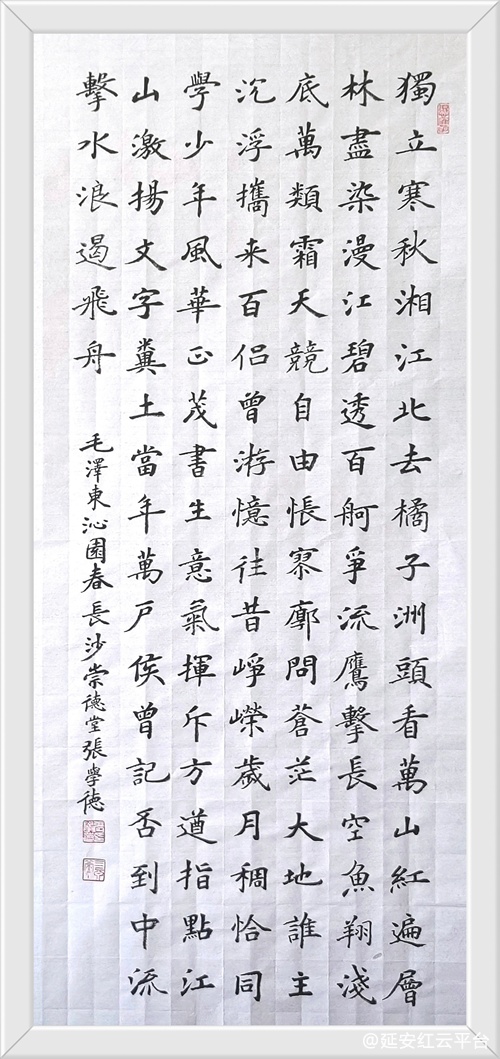 獨立寒秋湘江北去橘子洲頭看萬山紅遍層
林盡染漫江碧透百舸爭流鷹擊長空魚翔淺
底萬類霜天競自由悵寥廓問蒼茫大地誰主
沉浮攜来百侣曾游憶往昔崢嶸歲月稠恰同
學少年風華正茂書生意氣揮斥方遒指點江
山激揚文字糞土當年萬戶侯曾記否到中流
擊水浪遏飛舟
毛澤東沁園春長沙崇德堂張學德
@延安红云平台